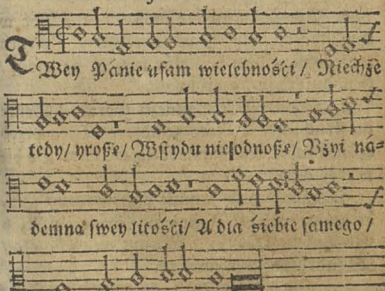 TWey Pánie ufam wielebności / Niechże
tedy / proßę / Wstydu nieodnoßę / Vżyi ná=
demną swey litości / A dla siebie samego /